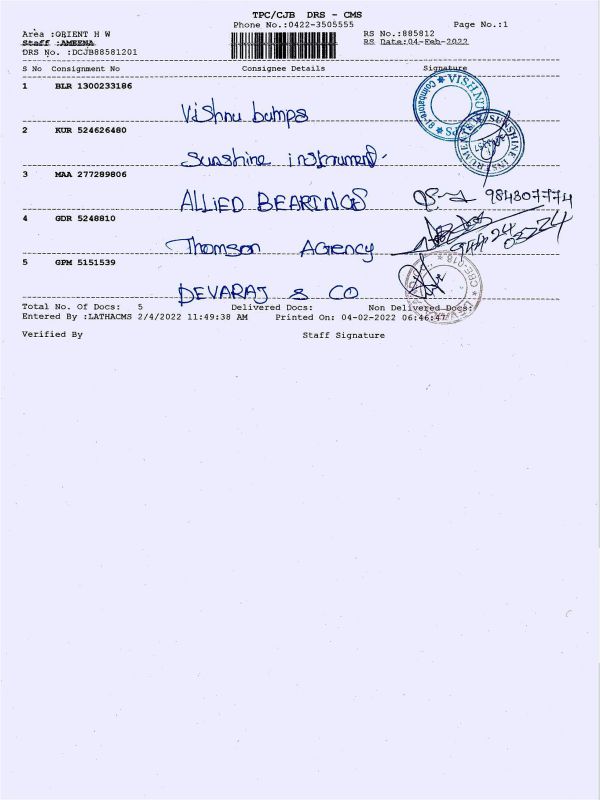 TPC/CJB DRS - CMS
Phone No.:0422-3505555
Page No.:1
Area :ORIENT H W
RS No.:885812
Staff :AMEENA
RS Date:04-Feb-2022
DRS No. :DCJB88581201
S No Consignment No Consignee Details Signature
1 BLR 1300233186
Vishnu bumps
VISHNU
Coimbatore
2 KUR 524626480
Sunshine instrument.
SUNSHINE INSTRUMENTS
3 MAA 277289806
ALLIED BEARINGS 984307774
4 GDR 5248810
Thomson Agency
5 GPM 5151539
DEVARAJ & CO
Total No. Of Docs: 5 Delivered Docs: Non Delivered Docs:
Entered By :LATHACMS 2/4/2022 11:49:38 AM Printed On: 04-02-2022 06:46:47
Verified By Staff Signature